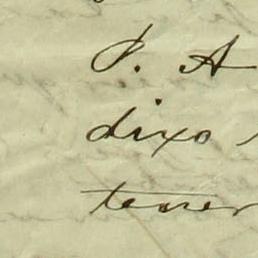 P. A
dixo
tener